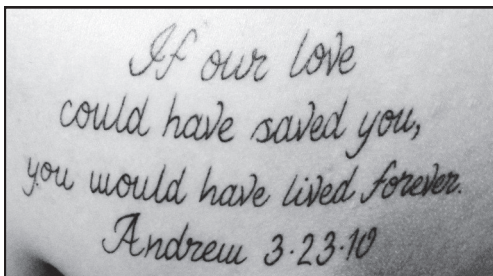 If our love
could have saved you,
you would have lived forever.
Andrew 3·23·10